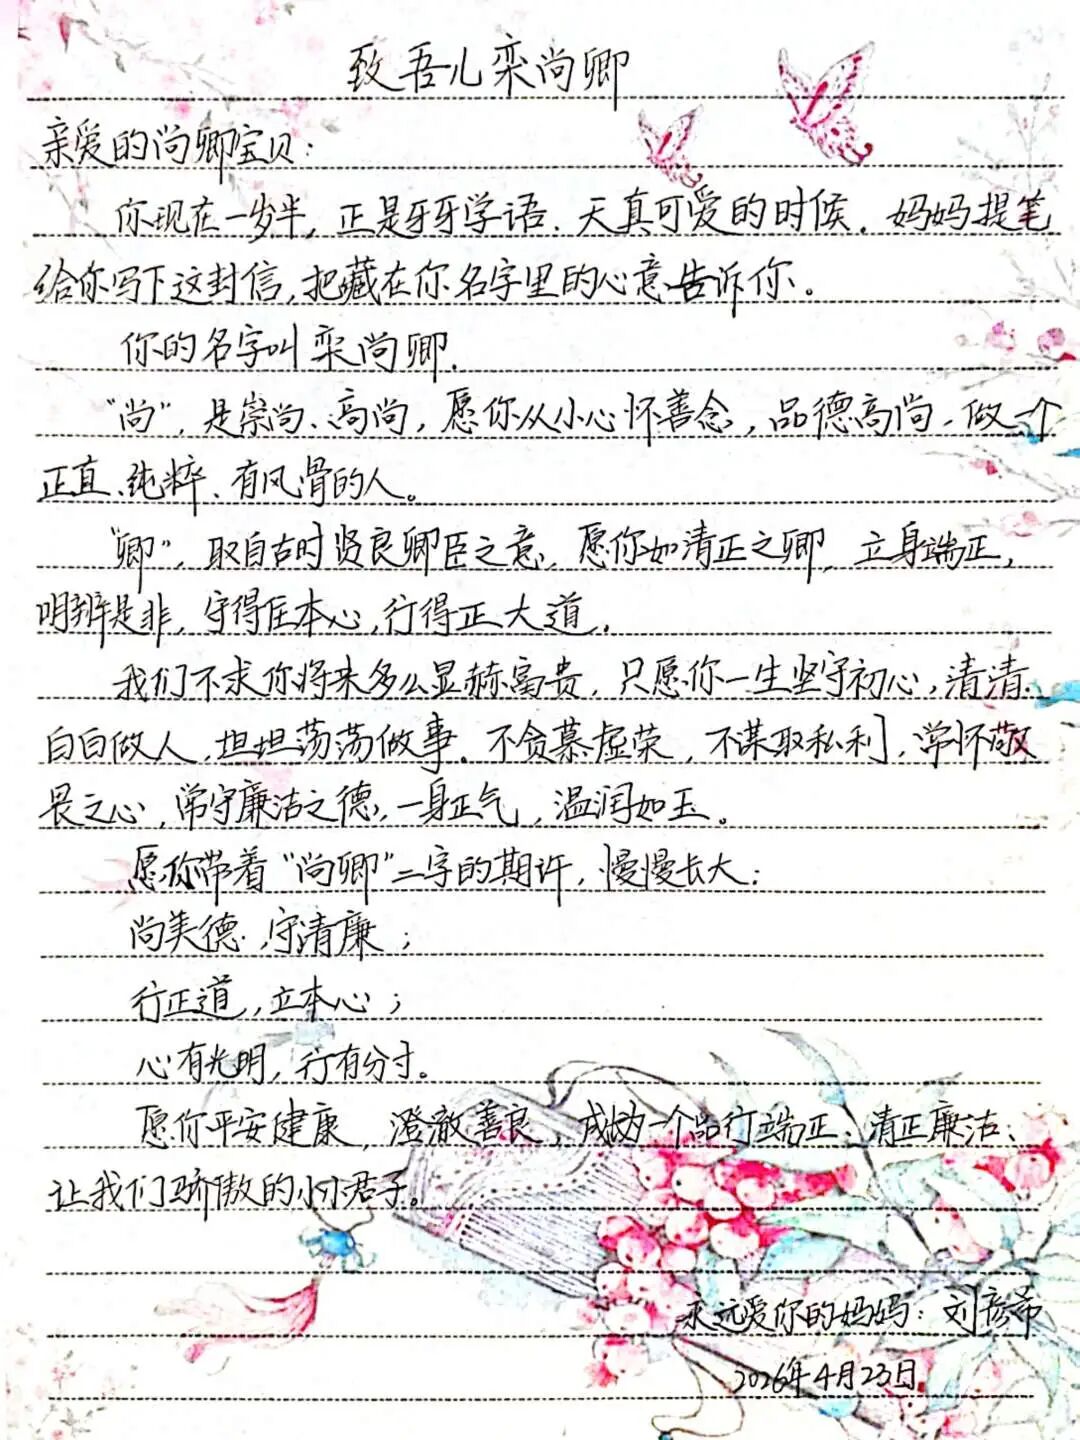 致吾儿栾尚卿
亲爱的尚卿宝贝：
你现在一岁半，正是牙牙学语、天真可爱的时候，妈妈提笔
给你写下这封信，把藏在你名字里的心意告诉你。
你的名字叫栾尚卿。
“尚”，是崇尚、高尚，愿你从小心怀善念，品德高尚，做一个
正直、纯粹、有风骨的人。
“卿”，取自古时贤良卿臣之意，愿你如清正之卿，立身端正，
明辨是非，守得住本心，行得正大道。
我们不求你将来多么显赫富贵，只愿你一生坚守初心，清清
白白做人，坦坦荡荡做事。不贪慕虚荣，不谋取私利，常怀敬
畏之心，常守廉洁之德，一身正气，温润如玉。
愿你带着“尚卿”二字的期许，慢慢长大：
尚美德，守清廉；
行正道，立本心；
心有光明，行有分寸。
愿你平安健康，澄澈善良，成为一个品行端正、清正廉洁、
让我们骄傲的小小君子。
永远爱你的妈妈：刘彦希
2026年4月23日